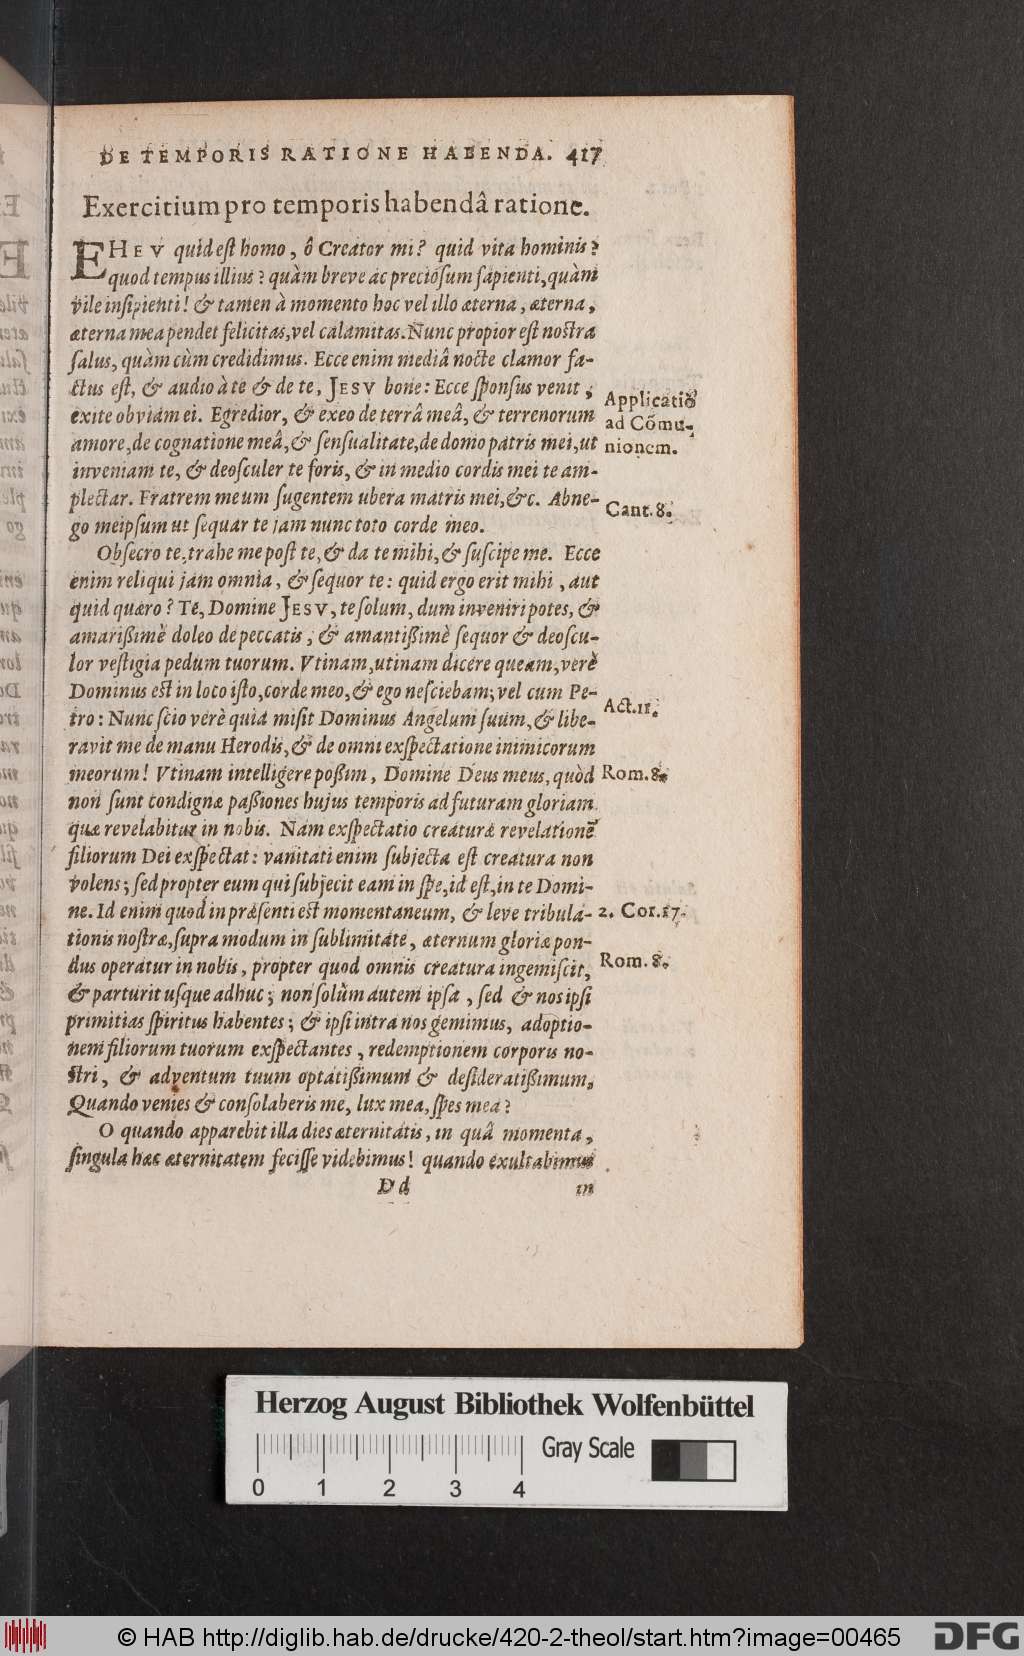 DE TEMPORIS RATIONE HABENDA. 417
Exercitium pro temporis habendâ ratione.
EHEV quid est homo, ô Creator mi? quid vita hominis?
quod tempus illius? quàm breve ac preciosum sapienti, quàm
vile insipienti! & tamen à momento hoc vel illo æterna, æterna,
æterna mea pendet felicitas, vel calamitas. Nunc propior est nostra
salus, quàm cùm credidimus. Ecce enim mediâ nocte clamor fa-
ctus est, & audio à te & de te, JESV bone: Ecce sponsus venit;
exite obviam ei. Egredior, & exeo de terrâ meâ, & terrenorum
amore, de cognatione meâ, & sensualitate, de domo patris mei, ut
inveniam te, & deosculer te foris, & in medio cordis mei te am-
plectar. Fratrem meum sugentem ubera matris mei, &c. Abne-
go meipsum ut sequar te jam nunc toto corde meo.
Applicatio
ad Cõmu-
nionem.
Cant. 8.
Obsecro te, trahe me post te, & da te mihi, & suscipe me. Ecce
enim reliqui jam omnia, & sequor te: quid ergo erit mihi, aut
quid quæro? Te, Domine JESV, te solum, dum inveniri potes, &
amarißimè doleo de peccatis, & amantißimè sequor & deoscu-
lor vestigia pedum tuorum. Vtinam, utinam dicere queam, verè
Dominus est in loco isto, corde meo, & ego nesciebam; vel cum Pe-
tro: Nunc scio verè quia misit Dominus Angelum suum, & libe-
ravit me de manu Herodis, & de omni exspectatione inimicorum
meorum! Vtinam intelligere poßim, Domine Deus meus, quòd
non sunt condignæ paßiones hujus temporis ad futuram gloriam
quæ revelabitur in nobis. Nam exspectatio creaturæ revelationē
filiorum Dei exspectat: vanitati enim subjecta est creatura non
volens; sed propter eum qui subjecit eam in spe, id est, in te Domi-
ne. Id enim quod in præsenti est momentaneum, & leve tribula-
tionis nostræ, supra modum in sublimitate, æternum gloriæ pon-
dus operatur in nobis, propter quod omnis creatura ingemiscit,
& parturit usque adhuc; non solùm autem ipsa, sed & nos ipsi
primitias spiritus habentes; & ipsi intra nos gemimus, adoptio-
nem filiorum tuorum exspectantes, redemptionem corporis no-
stri, & adventum tuum optatißimum & desideratißimum.
Quando venies & consolaberis me, lux mea, spes mea?
Act. 11.
Rom. 8.
2. Cor. 17.
Rom. 8.
O quando apparebit illa dies æternitatis, in quâ momenta,
singula hac æternitatem fecisse videbimus! quando exultabimus
D d
in
Herzog August Bibliothek Wolfenbüttel
Gray Scale
0 1 2 3 4
© HAB http://diglib.hab.de/drucke/420-2-theol/start.htm?image=00465
DFG